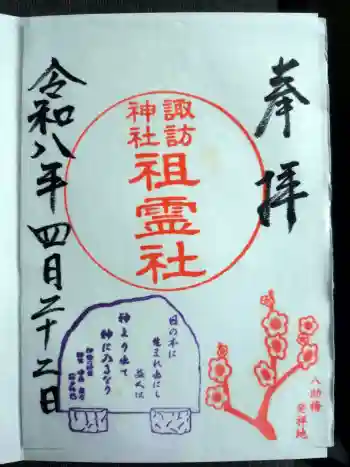 奉拝
諏訪
神社
祖霊社
八助梅
発祥地
日の本に
生まれ出にし
益人は
神より出て
神に入るなり
令和八年四月二十二日